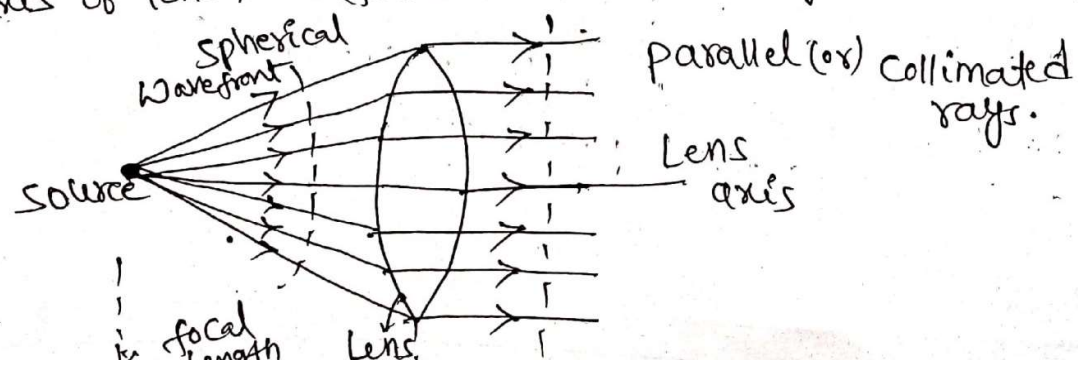 Spherical
Wavefront
Parallel (or) Collimated
rays.
Source
Lens
axis
focal
length
Lens